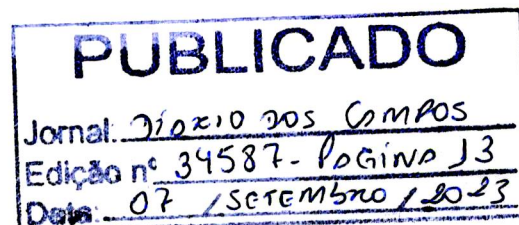 PUBLICADO
Jornal: Diário dos Campos
Edição nº 34587 - Página 13
Data: 07 / Setembro / 2023